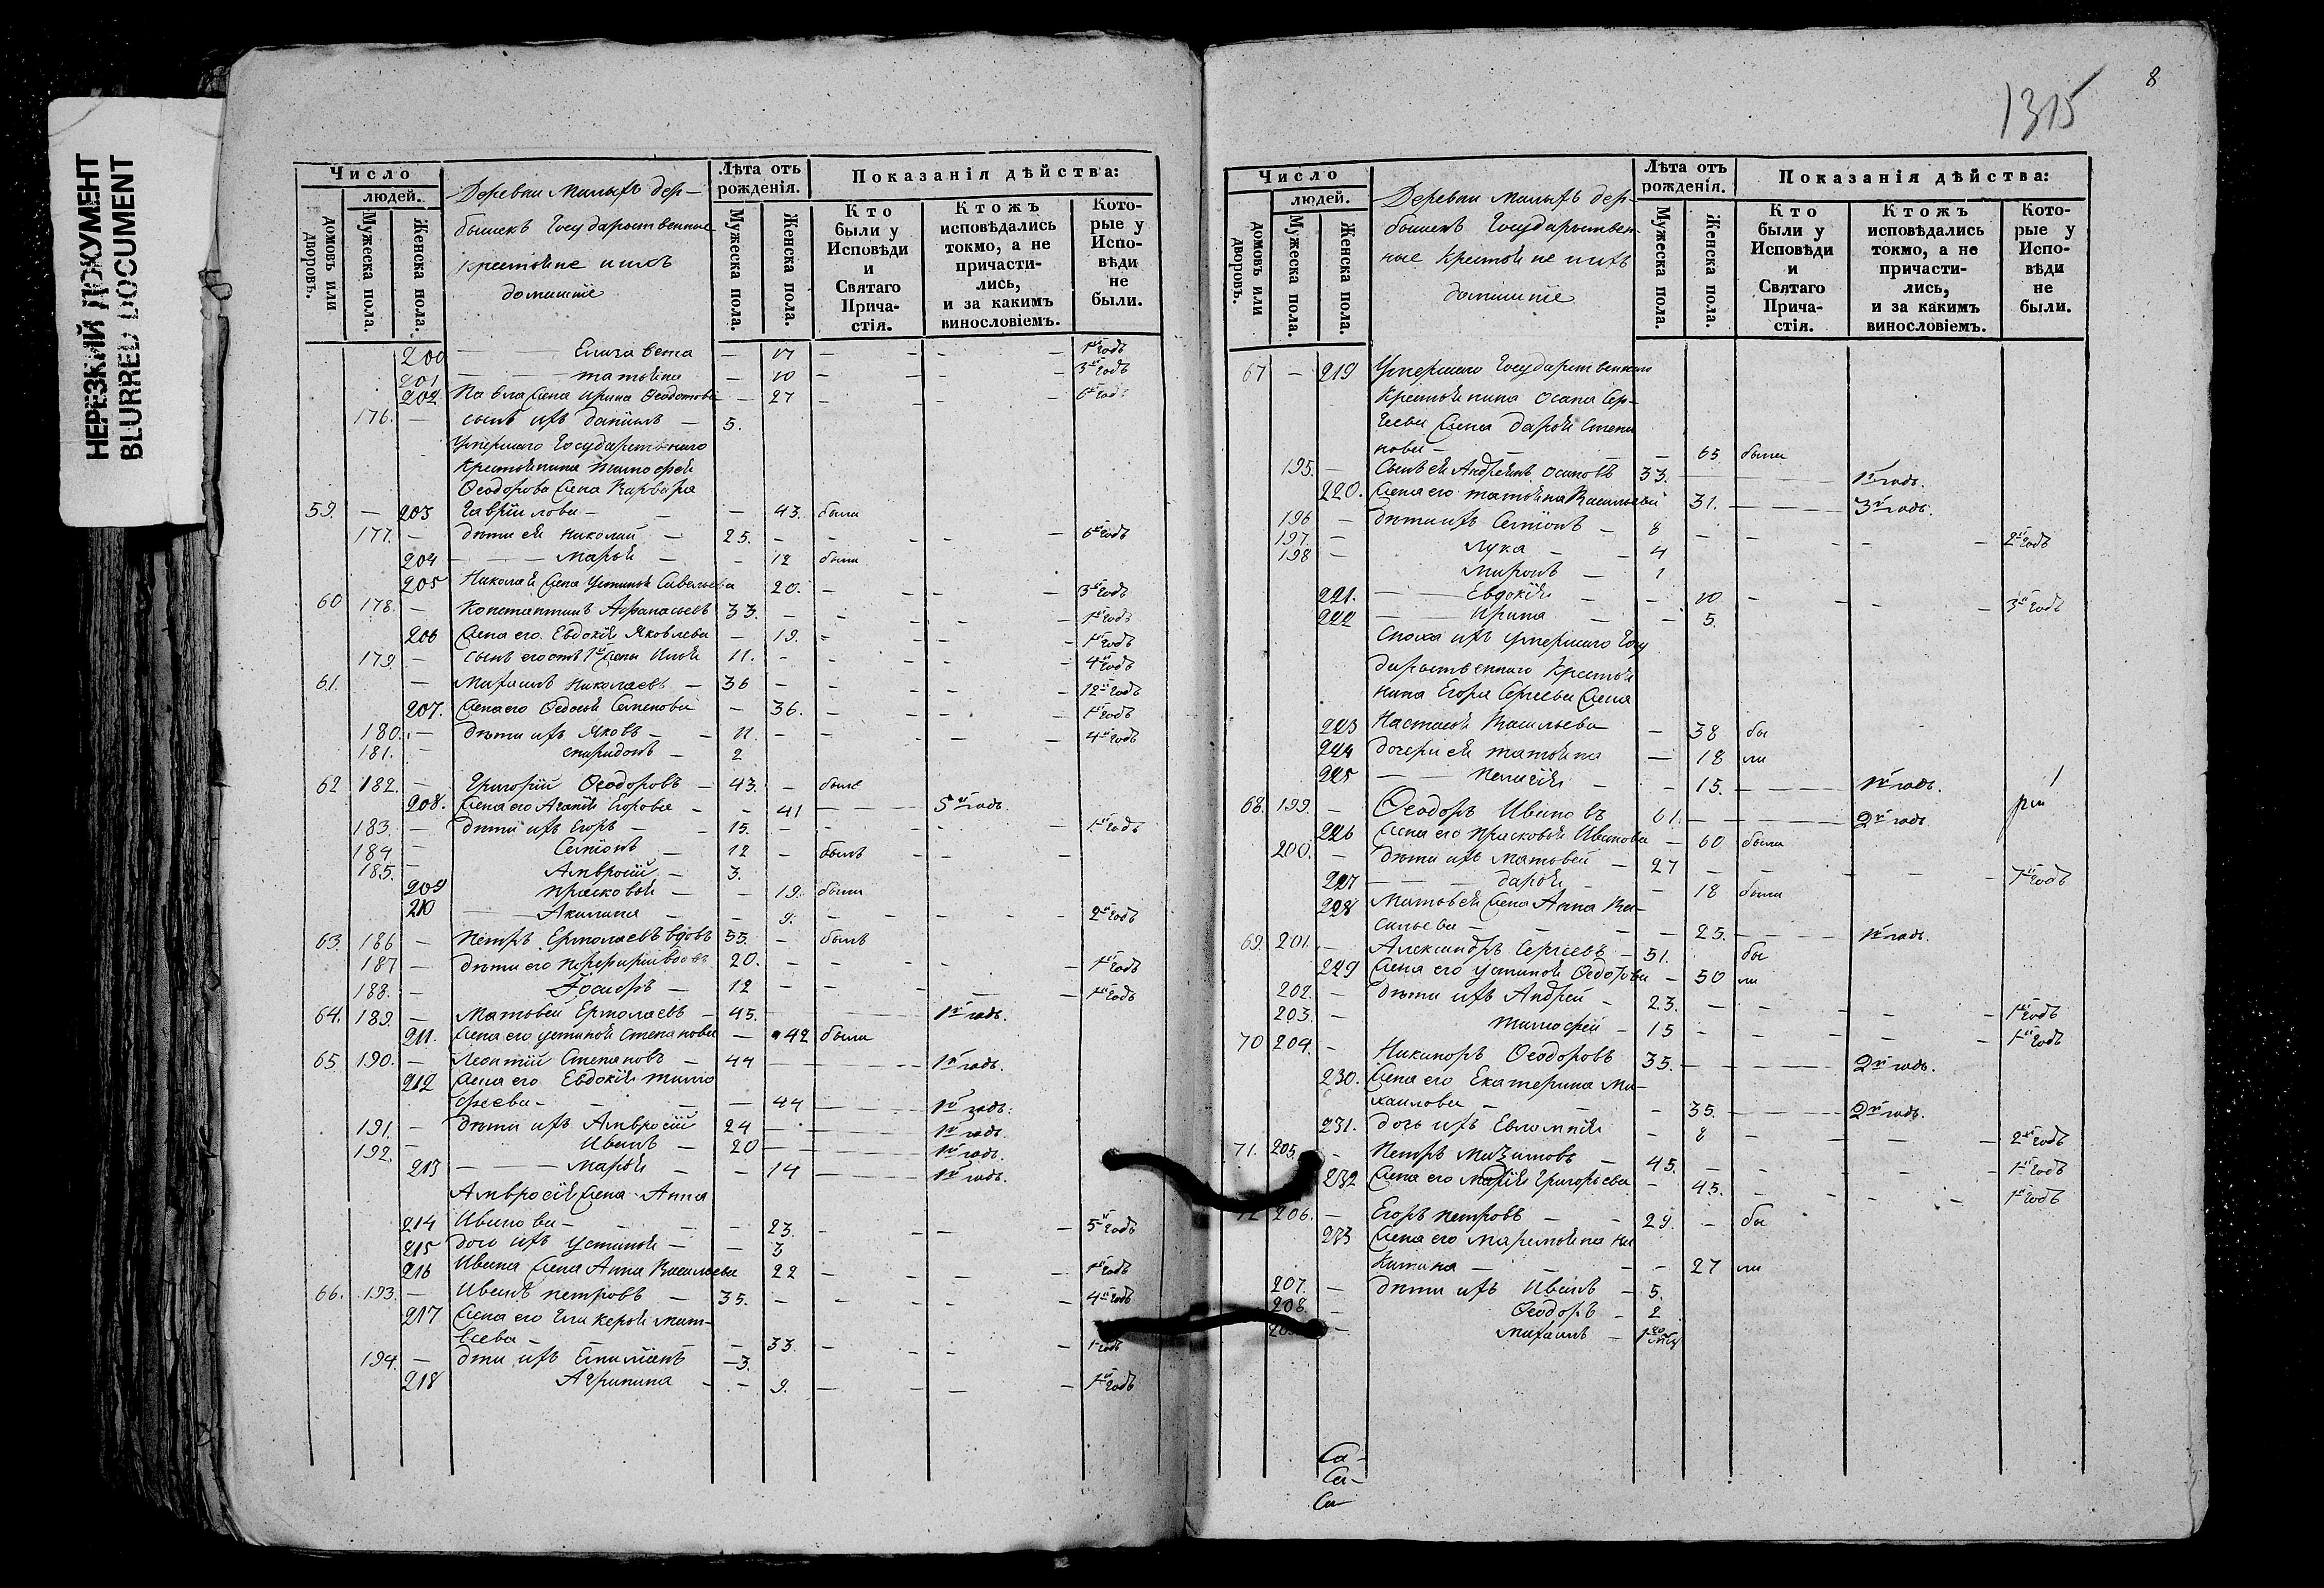 НЕРЕЗКИЙ ДОКУМЕНТ
BLURRED DOCUMENT
Число
людей.
домовъ или дворовъ.
Мужеска пола.
Женска пола.
Деревни Малыхъ Дер-
бышекъ Государственные
крестьяне и ихъ
домашніе
Лѣта отъ рожденія.
Мужеска пола.
Женска пола.
Показанія дѣйства:
Кто были у Исповѣди и Святаго Прича- стія.
Ктожъ исповѣдались токмо, а не причасти- лись, и за какимъ винословіемъ.
Кото- рые у Испо- вѣди не были.
200 — Елизавета — 11 — 1й годъ
201 — Татьяна — 10 — 3й годъ
202 Павла жена Ирина Ѳеодотова — 27 — 6й годъ
176. — сынъ ихъ Даніилъ — 5.
Умершаго Государственнаго
Крестьянина Тимофея
Ѳеодорова жена Варвара
59. — 203 Гаврилова — — 43. была
177. — дѣти ея Николай — 25. — 6й годъ
204 — Марья — 12 была
205 Николая жена Устинья Савельева 20. — 3й годъ
60 178. — Константинъ Афанасьевъ 33. — 1й годъ
206 жена его Евдокія Яковлева — 19. — 1й годъ
179 — сынъ его отъ 1й жены Илья 11. — 4й годъ
61. — Михаилъ Николаевъ — 36 — 12й годъ
207. жена его Ѳедосья Семенова — 36. — 1й годъ
180. — дѣти ихъ Яковъ — 11. — 4й годъ
181. спиридонъ — 2
62 182. — Григорій Ѳеодоровъ — 43. — былъ
208. жена его Агафія Егорова — 41 — 5й годъ.
183. — дѣти ихъ Егоръ — 15. — 1й годъ
184 — Семіонъ — 12 — былъ
185. — Амвросій — 3.
209 Прасковья — 19. была
210 — Акилина — 9. — 2й годъ
63. 186 — Петръ Ермолаевъ вдовъ 55. — былъ
187 — дѣти его Порфирій вдовъ 20. — 1й годъ
188. — Ѳедоръ — 12 — 1й годъ
64. 189. — Матовей Ермолаевъ — 45. — 1й годъ.
211. жена его устинья Степанова — 42 была
65 190. — Леонтій Степановъ — 44 — 1й годъ.
212 жена его Евдокія Тимо
феева — 44 — 1й годъ.
191. — дѣти ихъ Амвросій 24 — 1й годъ.
192. — Иванъ — 20 — 1й годъ.
213 — Марья — 14 — 1й годъ.
Амвросія жена Анна
214 Иванова — 23. — 5й годъ
215 дочь ихъ Устинья — 3
216 Ивана жена Анна Васильева 22 — 1й годъ
66. 193. — Иванъ Петровъ — 35. — 4й годъ
217 жена его Гликерья Мат-
веева — 33. — 1й годъ
194. — дѣти ихъ Емиліанъ — 3.
218 Агрипина — 9. — 1й годъ
8
1315
Число
людей.
домовъ или дворовъ.
Мужеска пола.
Женска пола.
Деревни Малыхъ Дер-
бышекъ Государствен-
ные Крестьяне и ихъ
домашніе
Лѣта отъ рожденія.
Мужеска пола.
Женска пола.
Показанія дѣйства:
Кто были у Исповѣди и Святаго Прича- стія.
Ктожъ исповѣдались токмо, а не причасти- лись, и за какимъ винословіемъ.
Кото- рые у Испо- вѣди не были.
67 — 219 Умершаго Государственнаго
Крестьянина Осипа Сер-
геева жена Дарья Степа
нова — — 65 была
195. — Сынъ ея Андреянъ Осиповъ 33. — 1й годъ.
220. жена его Татьяна Васильева 31. — 3й годъ.
196 — дѣти ихъ Семіонъ — 8 — 2й годъ
197. — Лука — 4
198 — Миронъ — 1
221. — Евдокія — 10 — 3й годъ
222 — Ирина — 5.
Сноха ихъ умершаго Госу
дарственнаго Крестья
нина Егора Сергеева жена
223 Настасья Васильева — 38 бы
224 дочери ея Татьяна — 18 ли
225 — Пелагія — 15. — 1й годъ.
68. 199. — Ѳеодоръ Ивановъ 61. — 2й годъ
226 жена его Прасковья Иванова — 60 была
200. — дѣти ихъ Матовей — 27 — 7й годъ
227 — Дарья — 18 была
228 Матовея жена Анна Ва-
сильева — 25. — 1й годъ.
69. 201. — Александръ Сергеевъ — 51. бы
229 жена его устинья Ѳедорова — 50 ли
202. — дѣти ихъ Андрей — 23. — 1й годъ
203. — Тимофей — 15 — 1й годъ
70 204. — Никаноръ Ѳеодоровъ 35. — 2й годъ.
230. жена его Екатерина Ми-
хаилова — 35. — 2й годъ.
231. дочь ихъ Евлампія — 8 — 2й годъ
71. 205 — Петръ Мазимовъ — 45. — 1й годъ
232 жена его Марія Григорьева — 45. — 1й годъ
72 206. — Егоръ Петровъ — 29. — бы
233 жена его Маремьяна Ни
китина — 27 ли
207. — дѣти ихъ Иванъ — 5.
208. — Ѳеодоръ — 2
— Михаилъ —
Са-
Са-
Са-